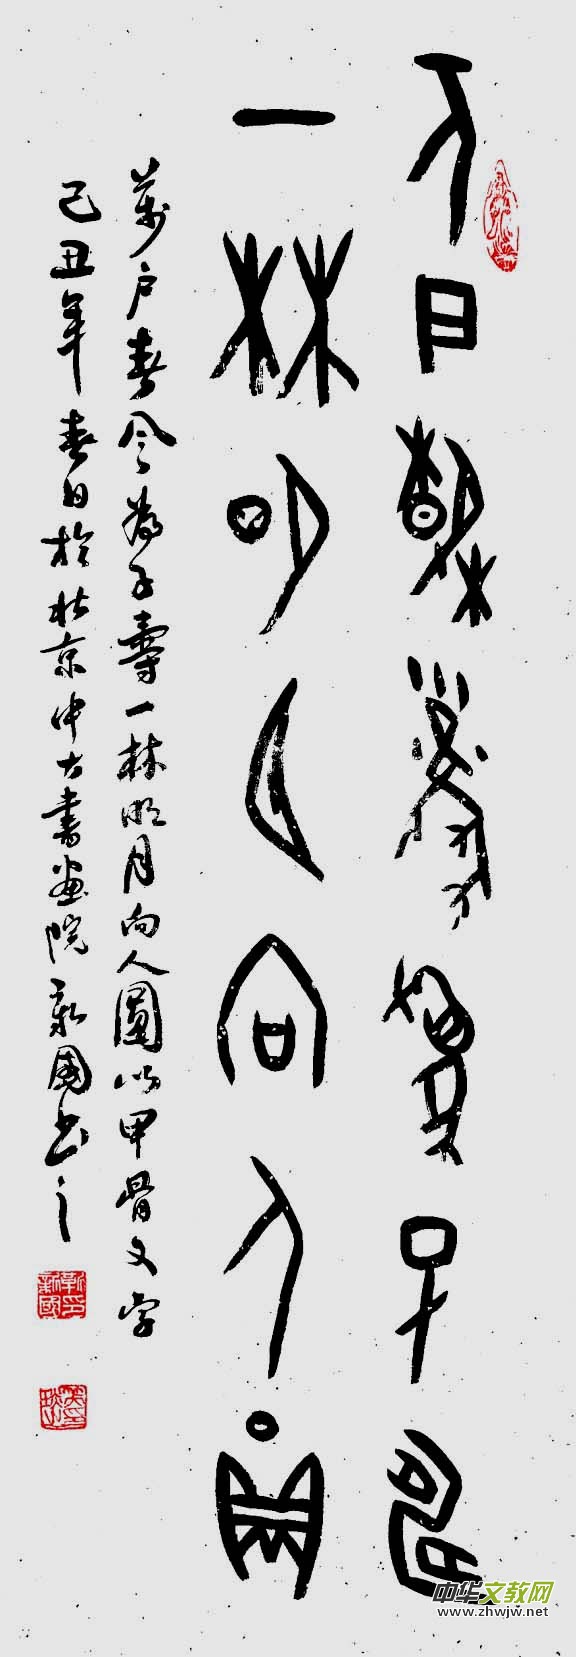 万户春風為子壽
一林明月向人圓
萬户春風為子壽一林明月向人圓以甲骨文字
己丑年春日於北京中古書畫院新國书之
中华文教网
www.zhwjw.net